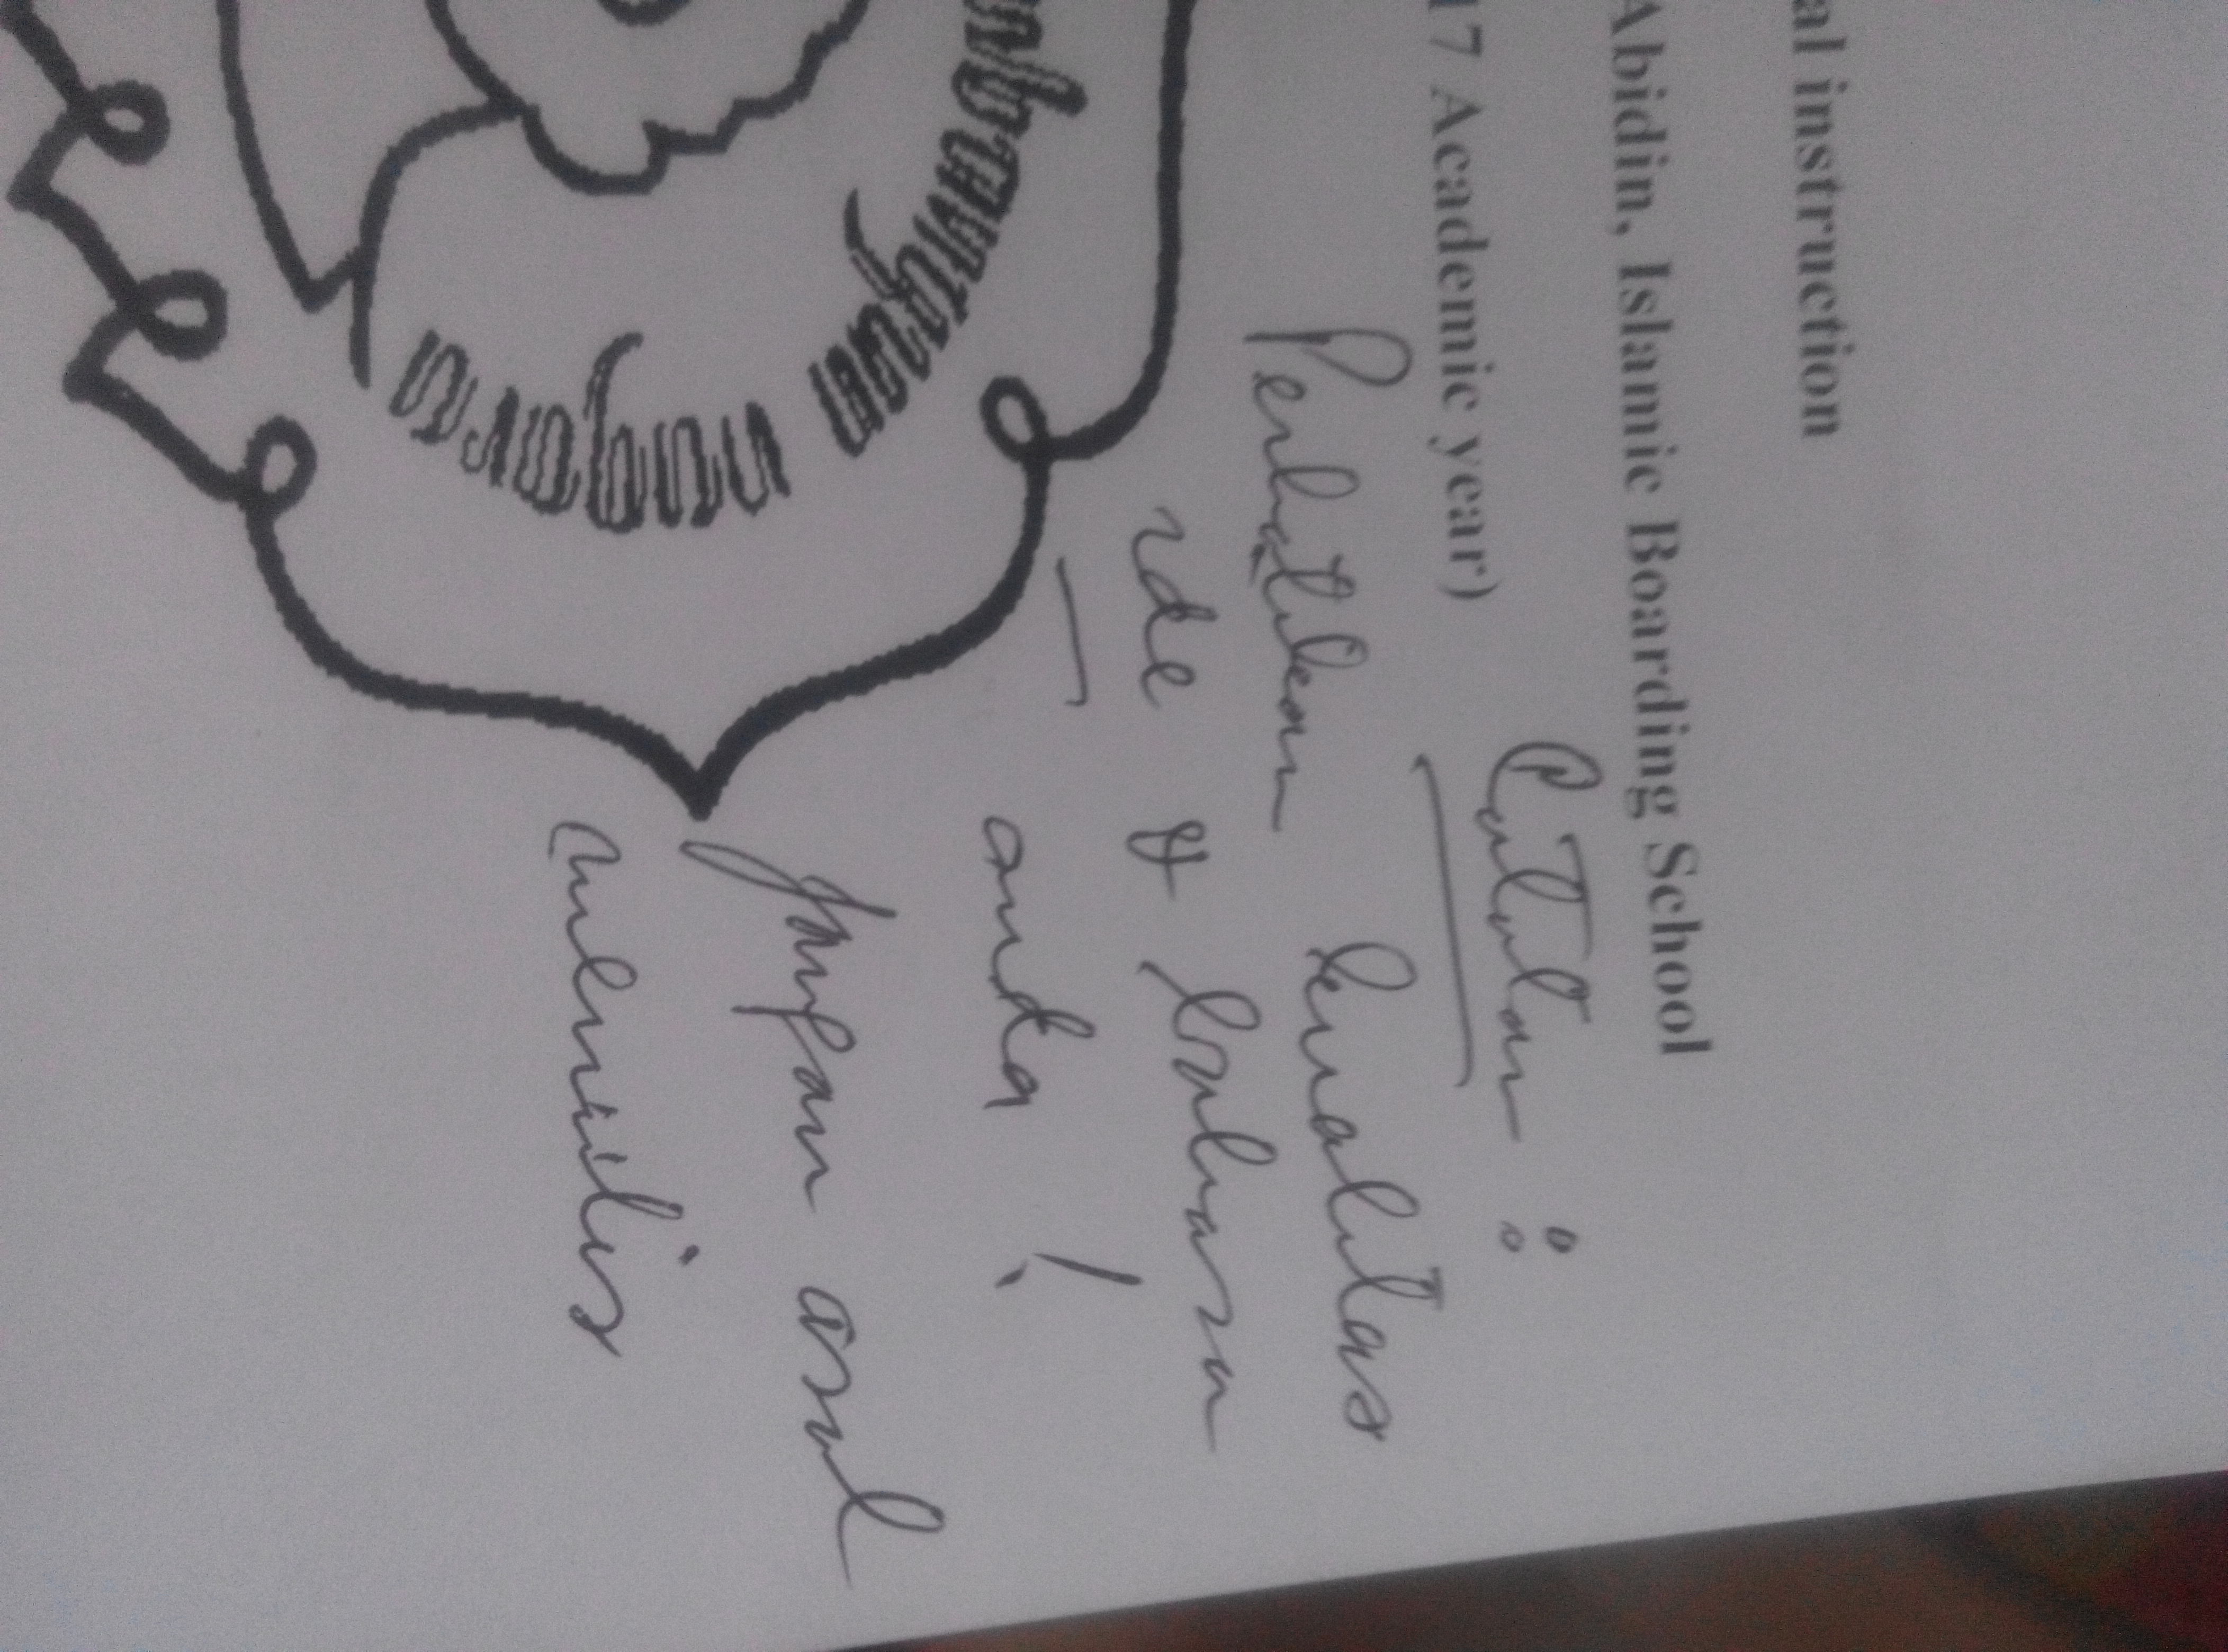 al instruction
Abidin, Islamic Boarding School
17 Academic year)
Catatan :
Perhatikan kualitas
ide & bahasa
anda !
Jangan asal
menulis